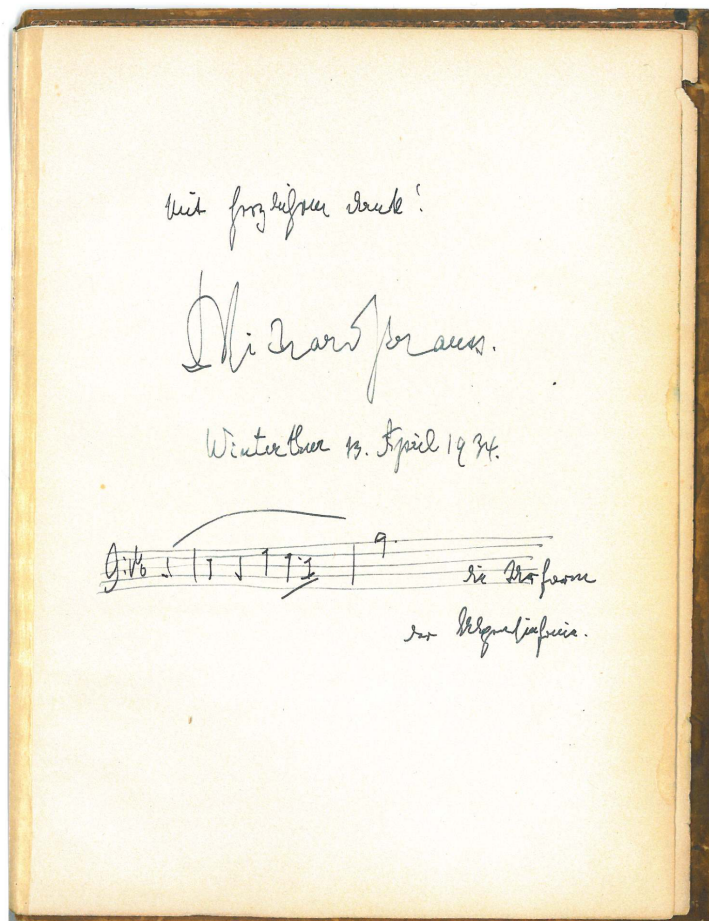 Mit herzlichem Dank!
Dr Richard Strauss.
Winterthur 13. April 1934.
die Urform
der